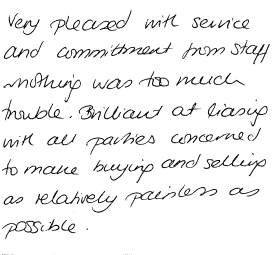 Very pleased with service
and committment from staff
- nothing was too much
trouble. Brilliant at liasing
with all parties concerned
to make buying and selling
as relatively painless as
possible.